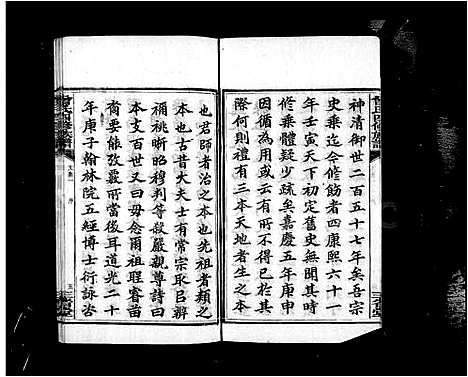 神清御世二百五十七年矣吾宗
史乘迄今修飭者四康熙六十一
年壬寅天下初定舊史無聞其時
修乘體疑少疏矣嘉慶五年庚申
因循為用或云有所不得已於其
際何則禮有三本天地者生之本
也君師者治之本也先祖者類之
本也古昔大夫士有常宗取臣辨
禰祧晰昭穆判等殺嚴親尊詩曰
本支百世又曰毋念爾祖聿苗
裔要能孜所當後耳道光二十
年庚子翰林院五經博士衍詠公
氏四修族譜
序
五
三省堂